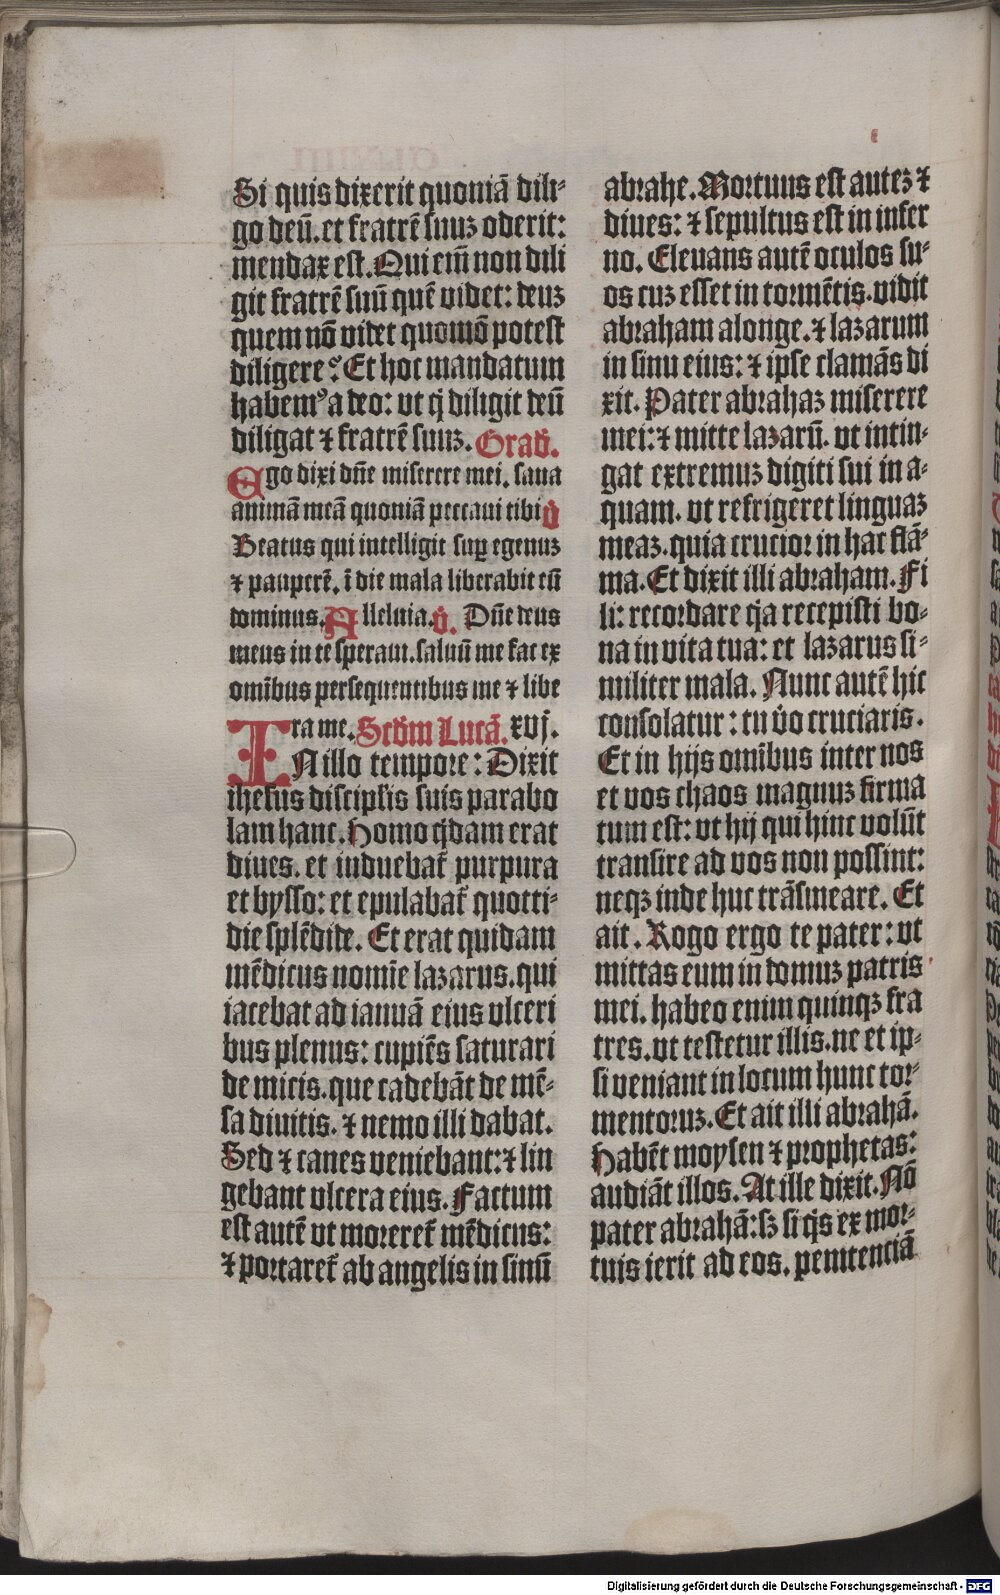 Si quis dixerit quoniā dili⸗
go deū. et fratrē suuʒ oderit:
mendax est. Qui em̄ non dili
git fratrē suū quē videt: deuʒ
quem nō videt quomō potest
diligere? Et hoc mandatum
habemꝰ a deo: vt q̇ diligit deū
diligat ⁊ fratrē suuʒ. Grad̄.
Ego dixi dn̄e miserere mei. sana
animā meā quoniā peccaui tibi v̄
Beatus qui intelligit suꝑ egenuʒ
⁊ pauperē. ī die mala liberabit eū
dominus. Alleluia. v̄. Dn̄e deus
meus in te speraui. saluū me fac ex
omībus persequentibus me ⁊ libe
ra me. Scd̄m Lucā. xvj.
INillo tempore: Dixit
ihesus discipl̄is suis parabo
lam hanc. Homo q̇dam erat
diues. et induebat᷑ purpura
et bysso: et epulabat᷑ quotti⸗
die splēdide. Et erat quidam
mēdicus nomīe lazarus. qui
iacebat ad ianuā eius vlceri
bus plenus: cupiēs saturari
de micis. que cadebāt de mē⸗
sa diuitis. ⁊ nemo illi dabat.
Sed ⁊ canes veniebant: ⁊ lin
gebant vlcera eius. Factum
est autē vt moreret᷑ mēdicus:
⁊ portaret᷑ ab angelis in sinū
abrahe. Mortuus est auteʒ ⁊
diues: ⁊ sepultus est in infer
no. Eleuans autē oculos su⸗
os cuʒ esset in tormētis. vidit
abraham a longe. ⁊ lazarum
in sinu eius: ⁊ ipse clamās di
xit. Pater abrahaʒ miserere
mei: ⁊ mitte lazarū. vt intin⸗
gat extremuʒ digiti sui in a⸗
quam. vt refrigeret linguaʒ
meaʒ. quia crucior in hac flā⸗
ma. Et dixit illi abraham. Fi
li: recordare q̇a recepisti bo⸗
na in vita tua: et lazarus si⸗
militer mala. Nunc autē hic
consolatur: tu v̇o cruciaris.
Et in hijs omībus inter nos
et vos chaos magnuʒ firma
tum est: vt hij qui hinc volūt
transire ad vos non possint:
neqʒ inde huc trāsmeare. Et
ait. Rogo ergo te pater: vt
mittas eum in domuʒ patris
mei. habeo enim quinqʒ fra
tres. vt testetur illis. ne et ip⸗
si veniant in locum hunc tor⸗
mentoruʒ. Et ait illi abrahā.
Habēt moysen ⁊ prophetas:
audiāt illos. At ille dixit. Nō
pater abrahā: sʒ si q̇s ex mor⸗
tuis ierit ad eos. penitenciā
Digitalisierung gefördert durch die Deutsche Forschungsgemeinschaft - DFG